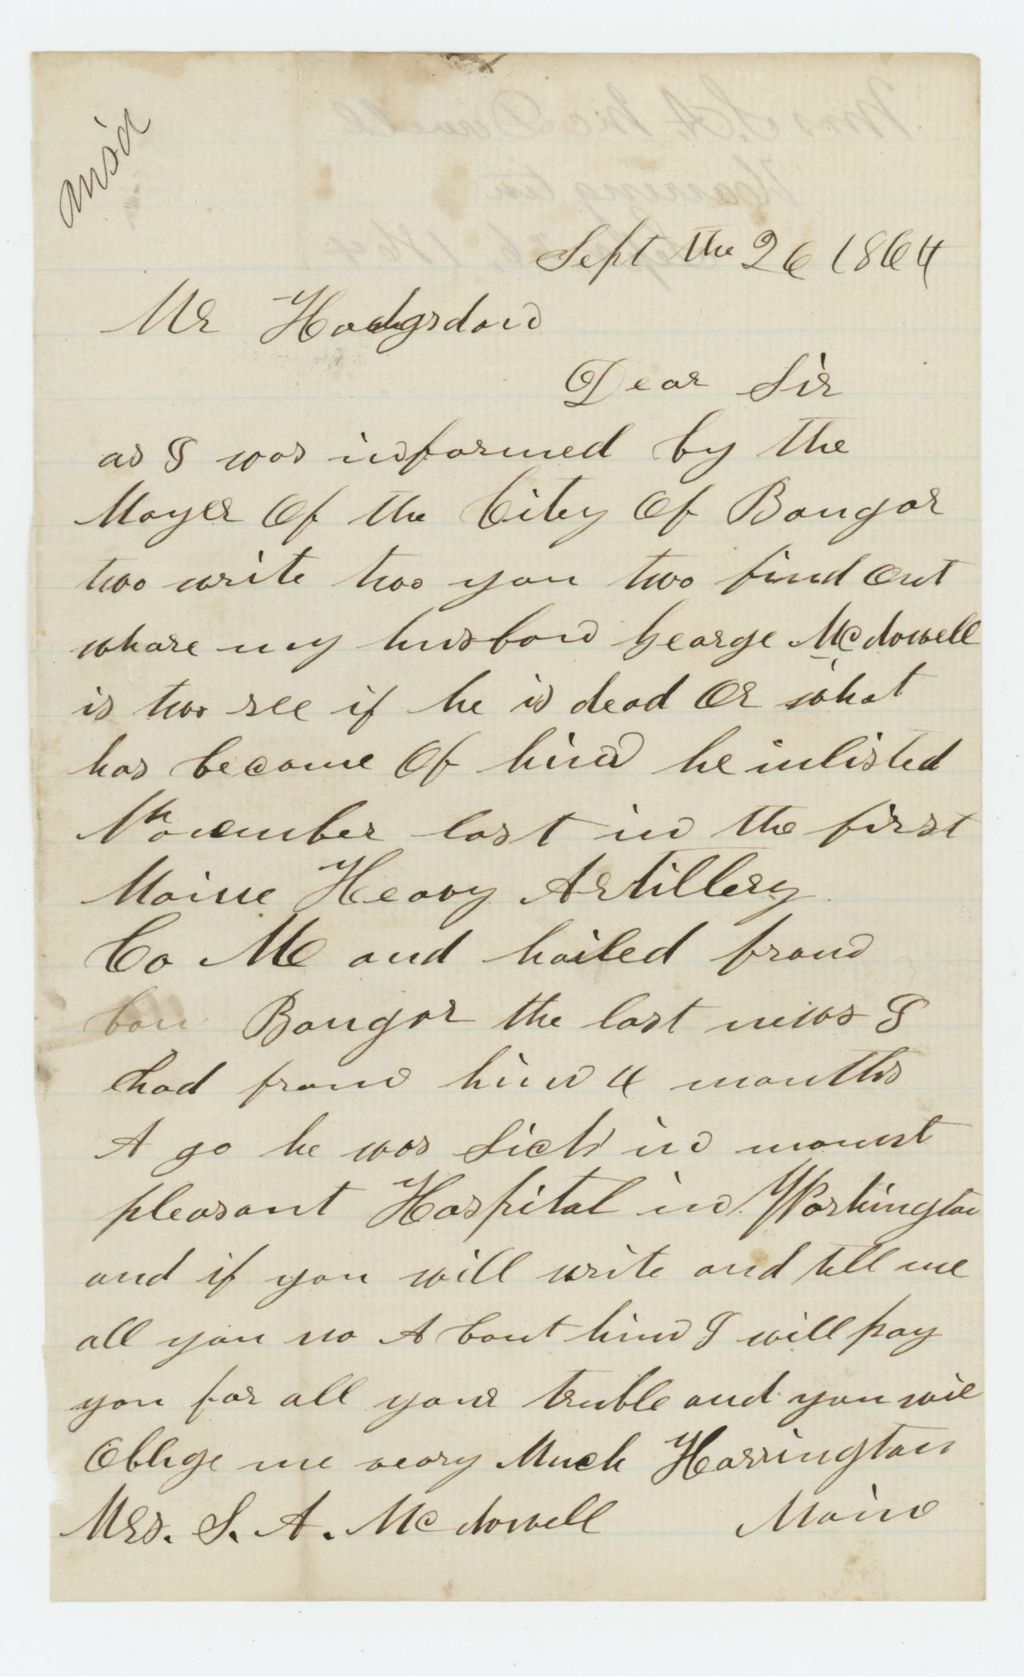 ans'd
Sept the 26 1864
Mr Hodgsdon
Dear Sir
as I was informed by the
Mayer Of the City Of Bangor
two write two you two find Out
whare my husbon George Mcdowell
is two see if he is dead Or what
has become Of him he inlisted
November last in the first
Maine Heavy Artillery
Co M and hailed from
Bangor the last news I
had from him 4 months
A go he was Sick in mount
pleasant Hospital in Washington
and if you will write and tell me
all you no A bout him I will pay
you for all your truble and you will
Oblige me veary Much Harrington
Mrs. S. A. Mcdowell Maine